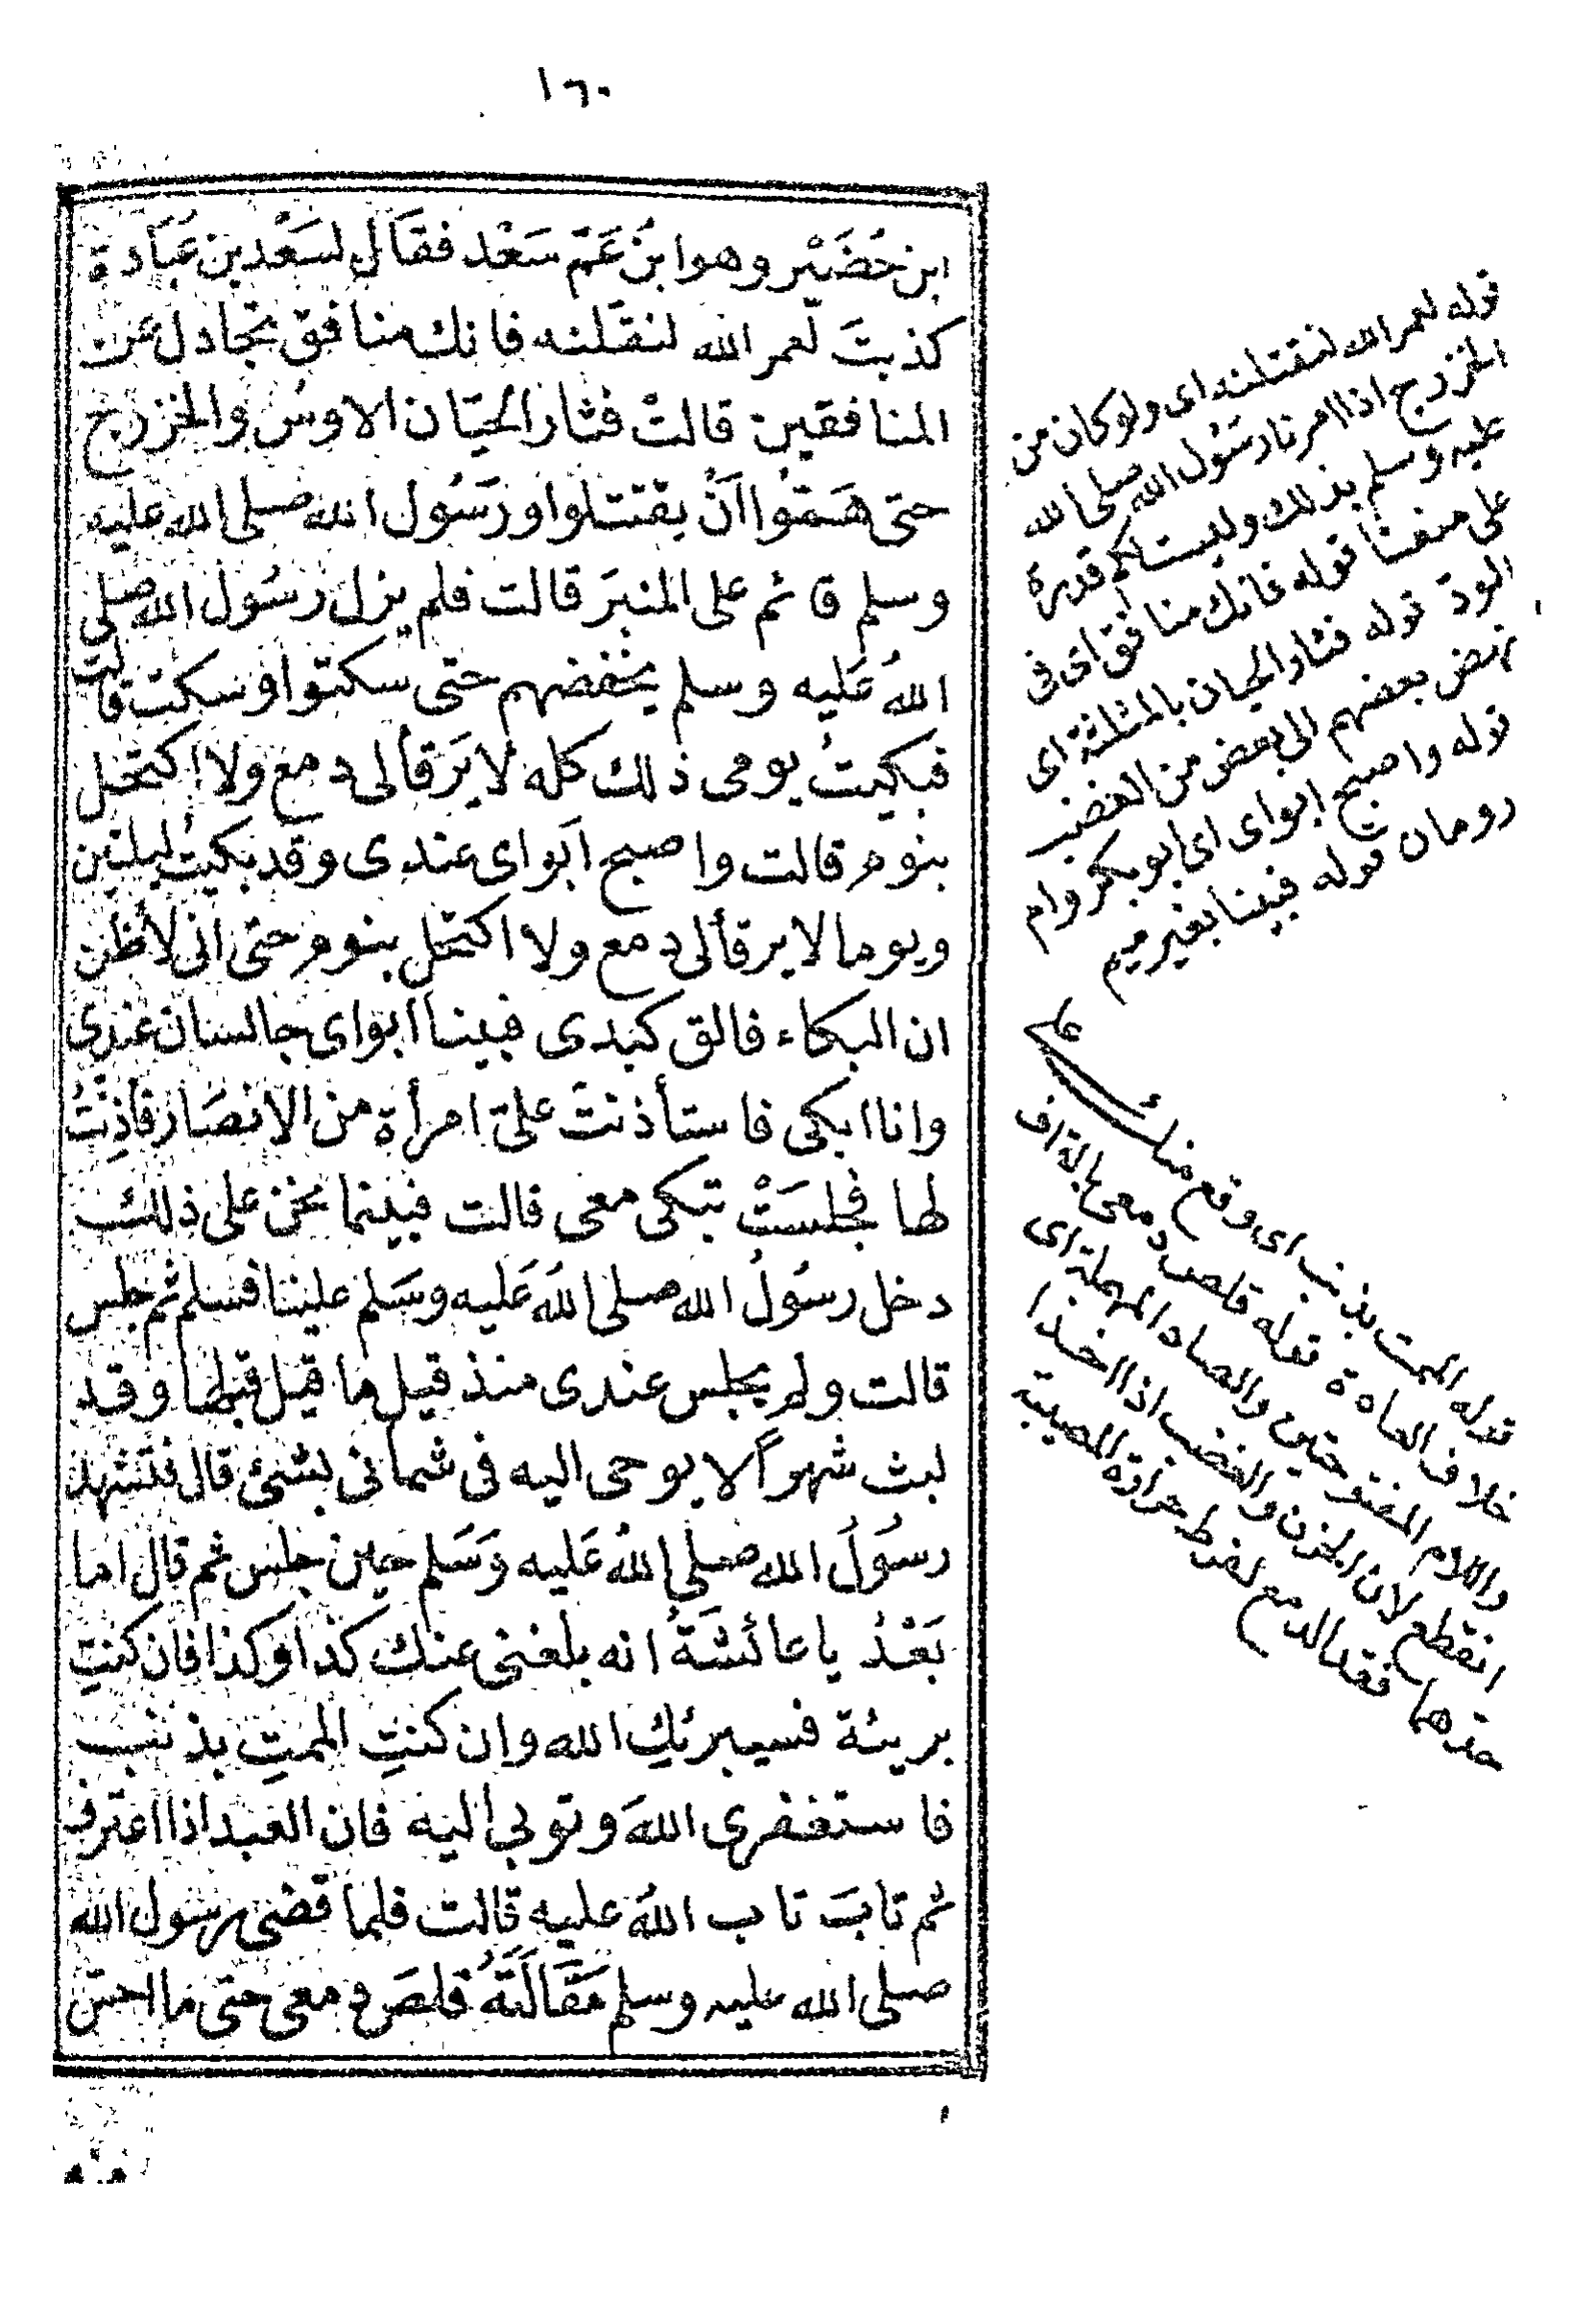 ١٦٠
ابن حُضَيْر وهو ابنُ عَمّ سَعْد فقَال لسَعْد بن عُبَادة
كذبتَ لَعمر الله لنقتلنه فانك منافق تجادل عن
المنافقين قالتْ فثار الحيّان الاوسُ والخزرج
حتى هَمّوُا اَنْ يقتتلوا ورَسُول الله صلى الله عليه
وسلم قائم على المنبَر قالت فلم يزل رسُول الله صلى
اللهُ عَليه وسلم يخفضهم حتى سكتوا وسكت قالت
فبكيتُ يومى ذلك كله لا يَرقأ لى دمع ولا اكتحل
بنوم قالت واصبح ابَواى عندى وقد بكيتُ ليلتين
ويوما لا يرقأ لى دمع ولا اكتحل بنوم حتى انى لأظن
ان البكاء فالق كبدى فبينا ابواى جالسان عندى
وانا ابكى فاستأذنتَ علىّ امرأة من الانصَار فأذِنْتُ
لها فجلسَتْ تبكى معى قالت فبينما نحن على ذلك
دخل رسُولُ الله صلى اللهَ عَليه وسَلم علينا فسلم ثم جلس
قالت ولم يجلس عندى منذ قيل ما قيل قبلها وقد
لبث شهراً لا يوحى اليه فى شأنى بشئ قال فتشهد
رسُولُ الله صلى اللهُ عَليه وَسَلم حين جلس ثم قال اما
بَعْدُ يا عائشَةُ انه بلغنى عنك كذا وكذا فان كنتِ
بريئة فسيبرئكِ الله وان كنتِ الممتِ بذنب
فاستغفرى اللهَ وتوبى اليه فان العبد اذا اعترف
ثم تابَ تاب اللهُ عليه قالت فلما قضى رسُول الله
صلى الله عليه وسلم مَقَالَتَهُ قلصَ دمعى حتى ما احسّ
قوله لعمر الله لنقتلنه اى ولو كان من
الخزرج اذا امرنا رسُول الله صلى الله
عليه وسلم بذلك وليست لكم قدرة
على منعنا قوله فانك منافق اى فى
الودّ قوله فثار الحيان بالمثلثة اى
نهض بعضهم الى بعض من الغضب
قوله واصبح ابواى اى ابو بكر وام
رومان قوله فبينا بغير ميم
قوله الممت بذنب اى وقع منك على
خلاف العادة قوله قلص دمعى بالقاف
واللام المفتوحتين والصاد المهملة اى
انقطع لان الحزن والغضب اذا اخذا
حدهما فقد الدمع لفرط حرارة المصيبة